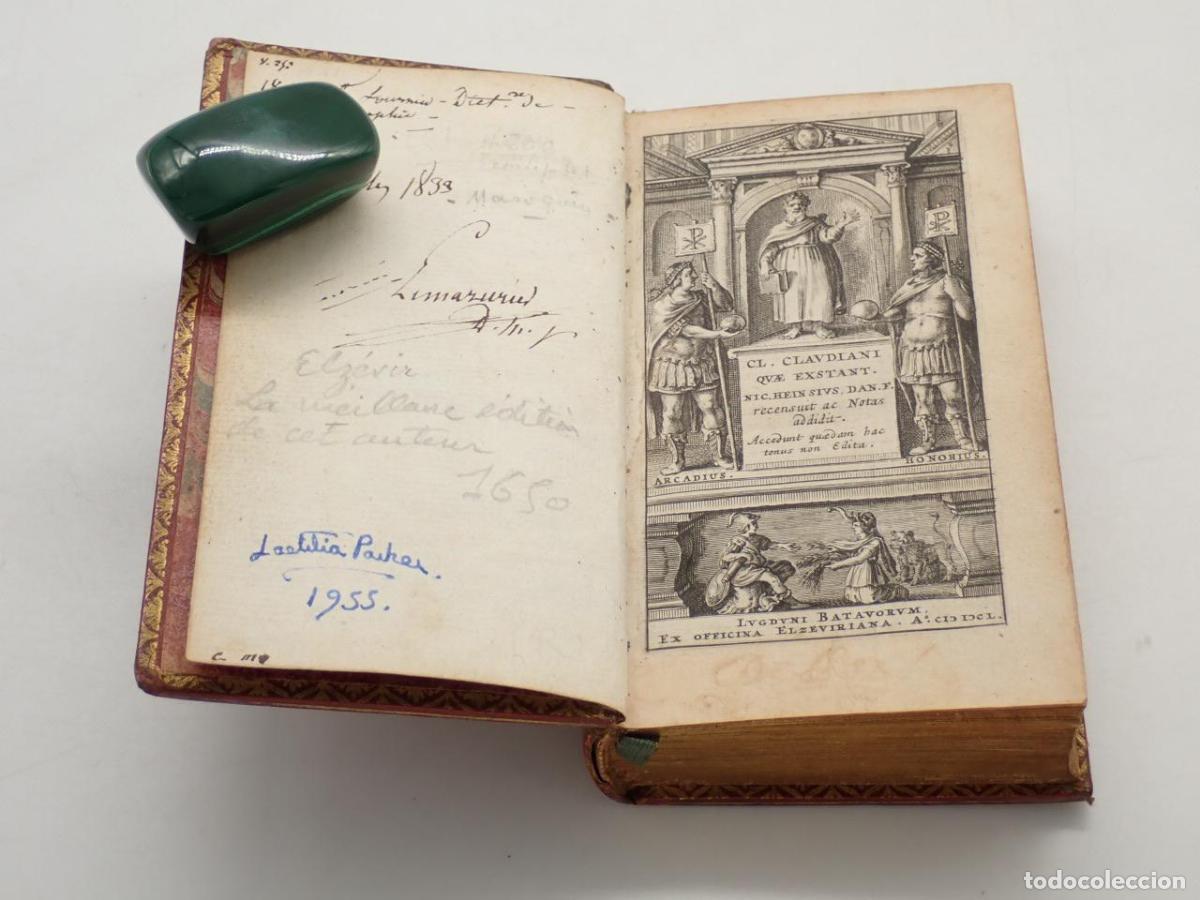 Dict.re de
1833
Maroquin
Lemazurier
D. M. P
Elzévir
La meilleure édition
de cet auteur
1650
Laetitia Parker.
1955.
CL. CLAVDIANI
QVÆ EXSTANT.
NIC. HEINSIVS, DAN. F.
recensuit ac Notas
addidit.
Accedunt quædam hac
tenus non Edita.
ARCADIUS.
HONORIUS.
LVGDVNI BATAVORVM,
EX OFFICINA ELZEVIRIANA. Aº. CIↃ IↃCL.
todocoleccion